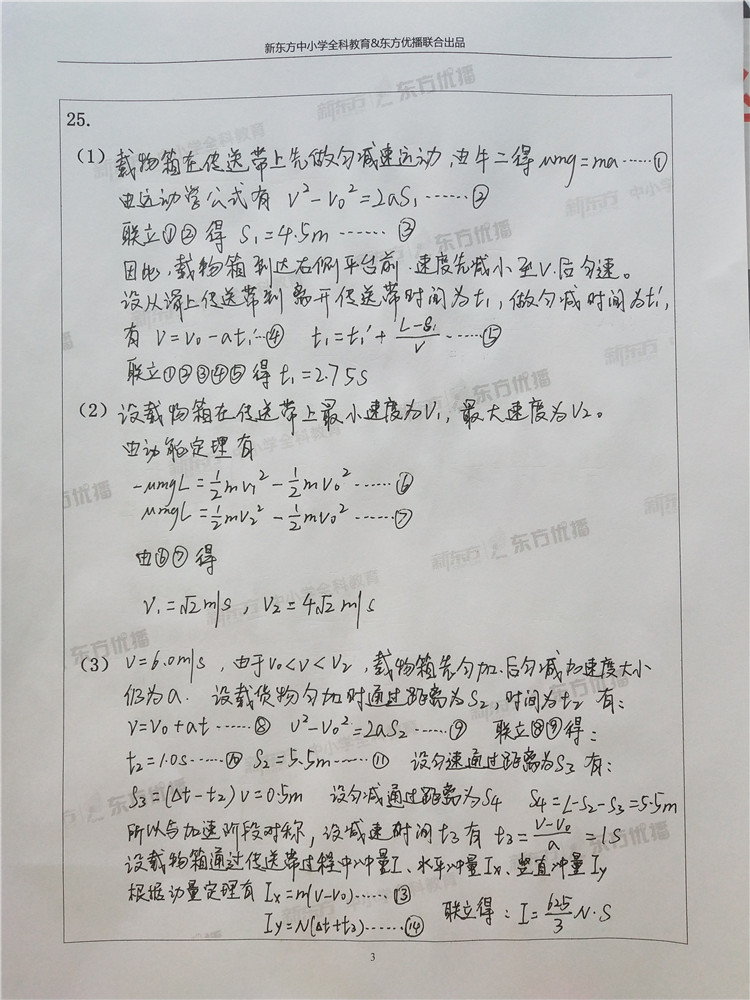 新东方中小学全科教育&东方优播联合出品
25.
(1) 载物箱在传送带上先做匀减速运动,由牛二得 μmg=ma……①
由运动学公式有 v²-v₀²=2aS₁……②
联立①②得 S₁=4.5m……③
因此,载物箱到达右侧平台前,速度先减小至V,后匀速。
设从滑上传送带到离开传送带时间为t₁,做匀减时间为t₁',
有 v=v₀-at₁'…④ t₁=t₁'+(L-S₁)/v……⑤
联立①②③④⑤得 t₁=2.75s
(2) 设载物箱在传送带上最小速度为V₁,最大速度为V₂。
由动能定理有
-μmgL=½mv₁²-½mv₀²……⑥
μmgL=½mv₂²-½mv₀²……⑦
由⑥⑦得
V₁=√2m/s,V₂=4√2m/s
(3) V=6.0m/s,由于V₀<V<V₂,载物箱先匀加.后匀减加速度大小
仍为a. 设载货物匀加时通过距离为S₂,时间为t₂ 有:
V=V₀+at……⑧ V²-V₀²=2aS₂……⑨ 联立⑧⑨得:
t₂=1.0s……⑩ S₂=5.5m……⑪ 设匀速通过距离为S₃ 有:
S₃=(Δt-t₂)v=0.5m 设匀减通过距离为S₄ S₄=L-S₂-S₃=5.5m
所以与加速阶段对称,设减速时间t₃有 t₃=(V-V₀)/a=1s
设载物箱通过传送带过程中冲量I、水平冲量Ix、竖直冲量Iy
根据动量定理有 Ix=m(V-V₀)……⑬
Iy=N(Δt+t₃)……⑭ 联立得:I=625/3 N·S
3